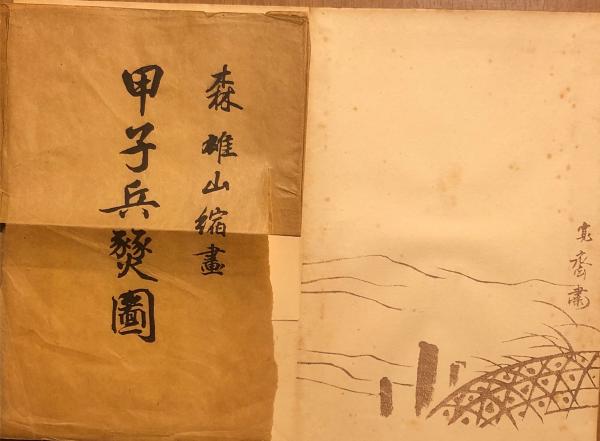 森雄山縮畫
甲子兵燹圖
寛齋肅